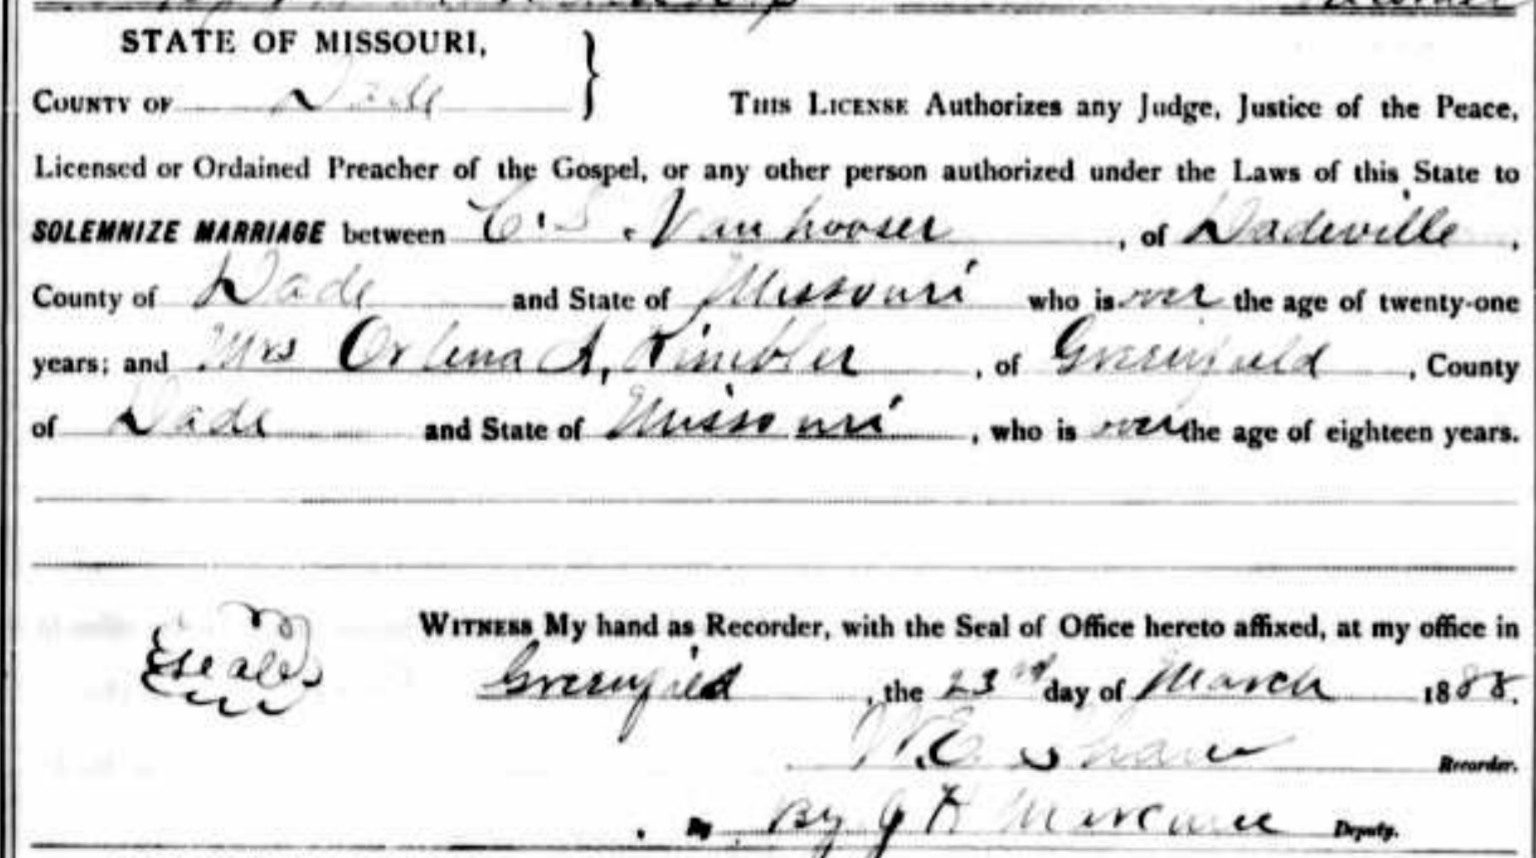 STATE OF MISSOURI,
COUNTY OF Dade } THIS LICENSE Authorizes any Judge, Justice of the Peace,
Licensed or Ordained Preacher of the Gospel, or any other person authorized under the Laws of this State to
SOLEMNIZE MARRIAGE between C. S. Vanhooser, of Dadeville,
County of Dade and State of Missouri who is over the age of twenty-one
years; and Mrs Orlena A, , of Greenfield, County
of Dade and State of Missouri, who is over the age of eighteen years.
Seal
WITNESS My hand as Recorder, with the Seal of Office hereto affixed, at my office in
Greenfield, the 23rd day of March 1888.
W.E. Shaw Recorder.
By By J H Deputy.